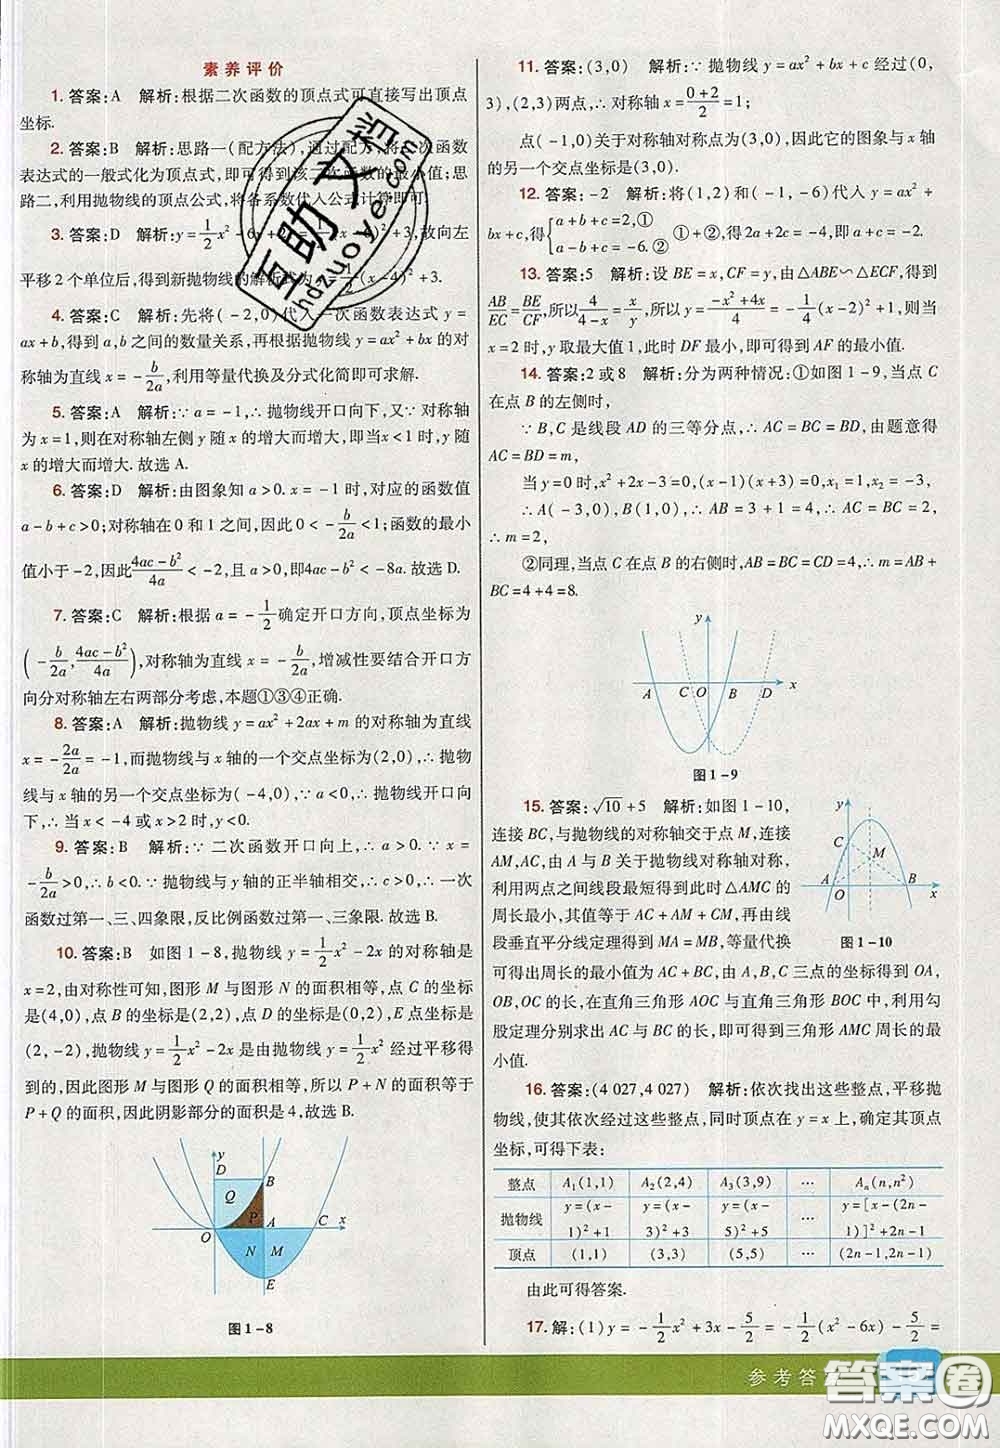 素养评价
1. 答案:A 解析:根据二次函数的顶点式可直接写出顶点
坐标.
2. 答案:B 解析:思路一(配方法),通过配方,将二次函数
表达式的一般式化为顶点式,即可得到该二次函数的最小值;思
路二,利用抛物线的顶点公式,将各系数代入公式计算即可.
3. 答案:D 解析:y=1/2x²-6x+ +3,故向左
平移2个单位后,得到新抛物线的解析式为y=1/2(x-4)²+3.
4. 答案:C 解析:先将(-2,0)代入一次函数表达式 y=
ax+b,得到 a,b 之间的数量关系,再根据抛物线 y=ax²+bx 的对
称轴为直线 x=-b/2a,利用等量代换及分式化简即可求解.
5. 答案:A 解析:∵a=-1,∴抛物线开口向下,又∵对称轴
为 x=1,则在对称轴左侧 y 随 x 的增大而增大,即当 x<1 时,y 随
x 的增大而增大.故选 A.
6. 答案:D 解析:由图象知 a>0. x=-1 时,对应的函数值
a-b+c>0;对称轴在 0 和 1 之间,因此 0<-b/2a<1;函数的最小
值小于-2,因此(4ac-b²)/4a<-2,且 a>0,即4ac-b²<-8a.故选 D.
7. 答案:C 解析:根据 a=-1/2确定开口方向,顶点坐标为
(-b/2a,(4ac-b²)/4a),对称轴为直线 x=-b/2a,增减性要结合开口方
向分对称轴左右两部分考虑,本题①③④正确.
8. 答案:A 解析:抛物线 y=ax²+2ax+m 的对称轴为直线
x=-2a/2a=-1,而抛物线与 x 轴的一个交点坐标为(2,0),∴抛物
线与 x 轴的另一个交点坐标为(-4,0).∵a<0,∴抛物线开口向
下,∴当 x<-4 或 x>2 时,y<0.
9. 答案:B 解析:∵二次函数开口向上,∴a>0.∵x=
-b/2a>0,∴b<0.∵抛物线与 y 轴的正半轴相交,∴c>0,∴一次
函数过第一、三、四象限,反比例函数过第一、三象限.故选 B.
10. 答案:B 如图 1-8,抛物线 y=1/2x²-2x 的对称轴是
x=2,由对称性可知,图形 M 与图形 N 的面积相等,点 C 的坐标
是(4,0),点 B 的坐标为(2,2),点 D 的坐标为(0,2),E 点坐标是
(2,-2),抛物线 y=1/2x²-2x 是由抛物线 y=1/2x² 经过平移得
到的,因此图形 M 与图形 Q 的面积相等,所以 P+N 的面积等于
P+Q 的面积,因此阴影部分的面积是 4,故选 B.
y
D
B
Q
P
O
A
C
x
N
M
E
图 1-8
11. 答案:(3,0) 解析:∵抛物线 y=ax²+bx+c 经过(0,
3),(2,3)两点,∴对称轴 x=(0+2)/2=1;
点(-1,0)关于对称轴对称点为(3,0),因此它的图象与 x 轴
的另一个交点坐标是(3,0).
12. 答案:-2 解析:将(1,2)和(-1,-6)代入 y=ax²+
bx+c,得{a+b+c=2,① a-b+c=-6.② ①+②,得 2a+2c=-4,即 a+c=-2.
13. 答案:5 解析:设 BE=x,CF=y,由△ABE∽△ECF,得到
AB/EC=BE/CF,所以4/(4-x)=x/y,所以 y=(-x²+4x)/4=-1/4(x-2)²+1,则当
x=2 时,y 取最大值 1,此时 DF 最小,即可得到 AF 的最小值.
14. 答案:2 或 8 解析:分为两种情况:①如图 1-9,当点 C
在点 B 的左侧时,
∵B,C 是线段 AD 的三等分点,∴AC=BC=BD,由题意得
AC=BD=m,
当 y=0 时,x²+2x-3=0,(x-1)(x+3)=0,x₁=1,x₂=-3,
∴A(-3,0),B(1,0),∴AB=3+1=4,∴AC=BC=2,
∴m=2,
②同理,当点 C 在点 B 的右侧时,AB=BC=CD=4,∴m=AB+
BC=4+4=8.
y
A
C
O
B
D
x
图 1-9
15. 答案:√10+5 解析:如图 1-10,
连接 BC,与抛物线的对称轴交于点 M,连接
AM,AC,由 A 与 B 关于抛物线对称轴对称,
利用两点之间线段最短得到此时△AMC 的
周长最小,其值为 AC+AM+CM,再由线
段垂直平分线定理得到 MA=MB,等量代换
可得出周长的最小值为 AC+BC,由 A,B,C 三点的坐标得到 OA,
OB,OC 的长,在直角三角形 AOC 与直角三角形 BOC 中,利用勾
股定理分别求出 AC 与 BC 的长,即可得到三角形 AMC 周长的最
小值.
y
C
M
A
O
B
x
图 1-10
16. 答案:(4 027,4 027) 解析:依次找出这些整点,平移抛
物线,使其依次经过这些整点,同时顶点在 y=x 上,确定其顶点
坐标,可得下表:
整点 A₁(1,1) A₂(2,4) A₃(3,9) … Aₙ(n,n²)
抛物线 y=(x-1)²+1 y=(x-3)²+3 y=(x-5)²+5 … y=[x-(2n-1)]²+2n-1
顶点 (1,1) (3,3) (5,5) … (2n-1,2n-1)
由此可得答案.
17. 解:(1)y=-1/2x²+3x-5/2=-1/2(x²-6x)-5/2=
参考答
互助文档
hdzuoye.com
答案圈
MXQE.COM